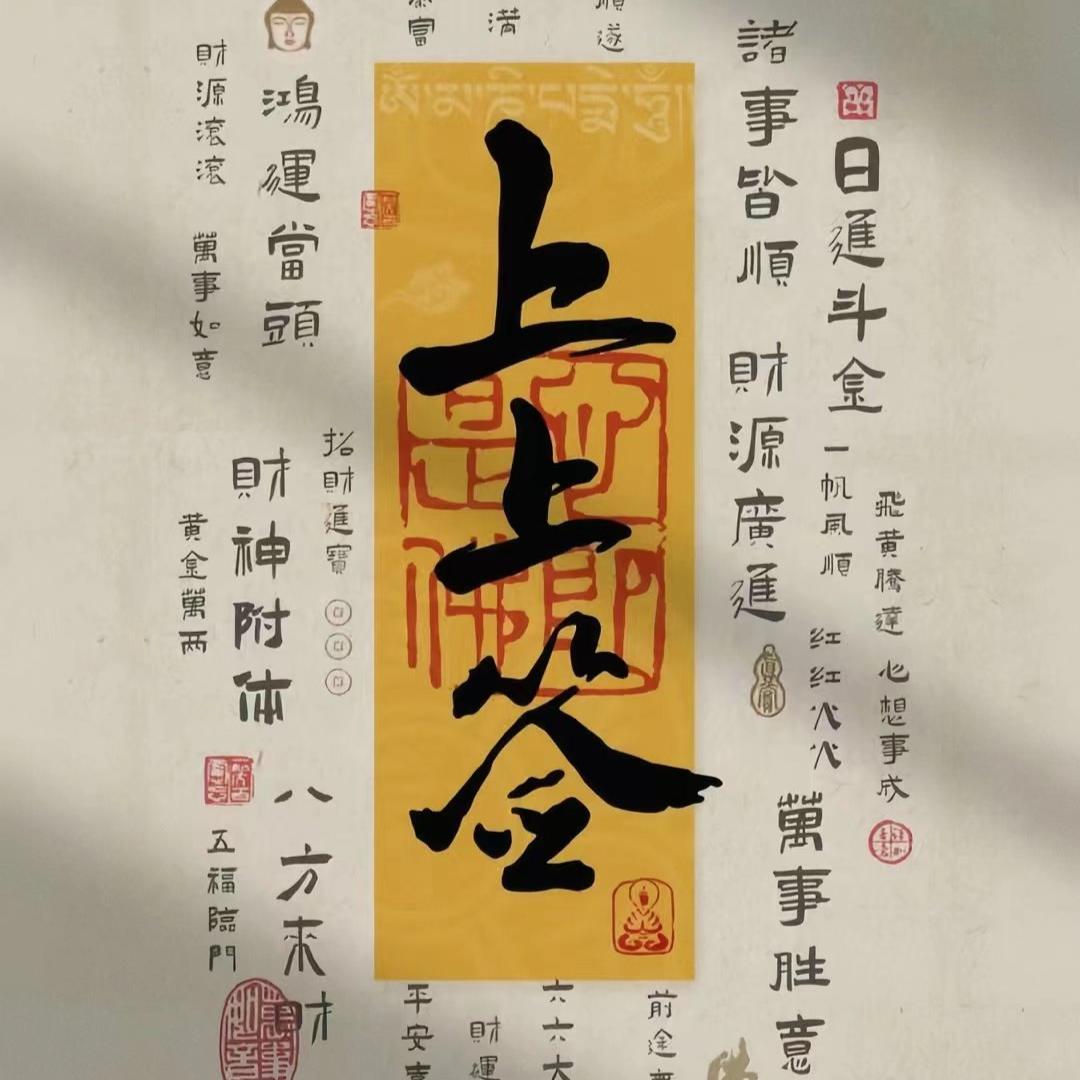 飛黃騰達
心想事成
日進斗金
一帆風順
紅紅火火
諸事皆順
財源廣進
萬事胜意
順遂
满
富
ཨོཾ་མ་ཎི་པདྨེ་ཧཱུྃ
上上签
心即是佛
招財進寶
鴻運當頭
財神附体
八方来財
財源滾滾
萬事如意
黄金萬两
五福臨門
前途
六六大
財運
平安